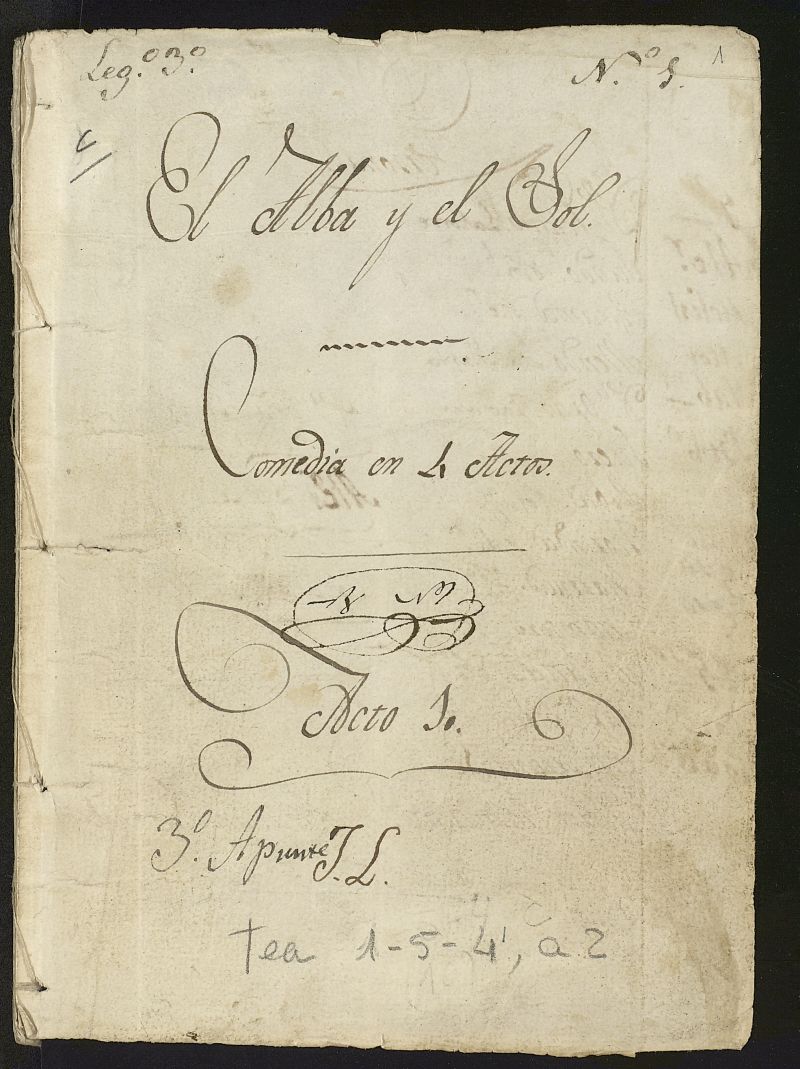 Leg.º 3º
N.º 1.
1
El Alba y el Sol.
Comedia en 4 Actos.
Acto 1º.
3º Apunte J. L.
tea 1-5-4, a 2